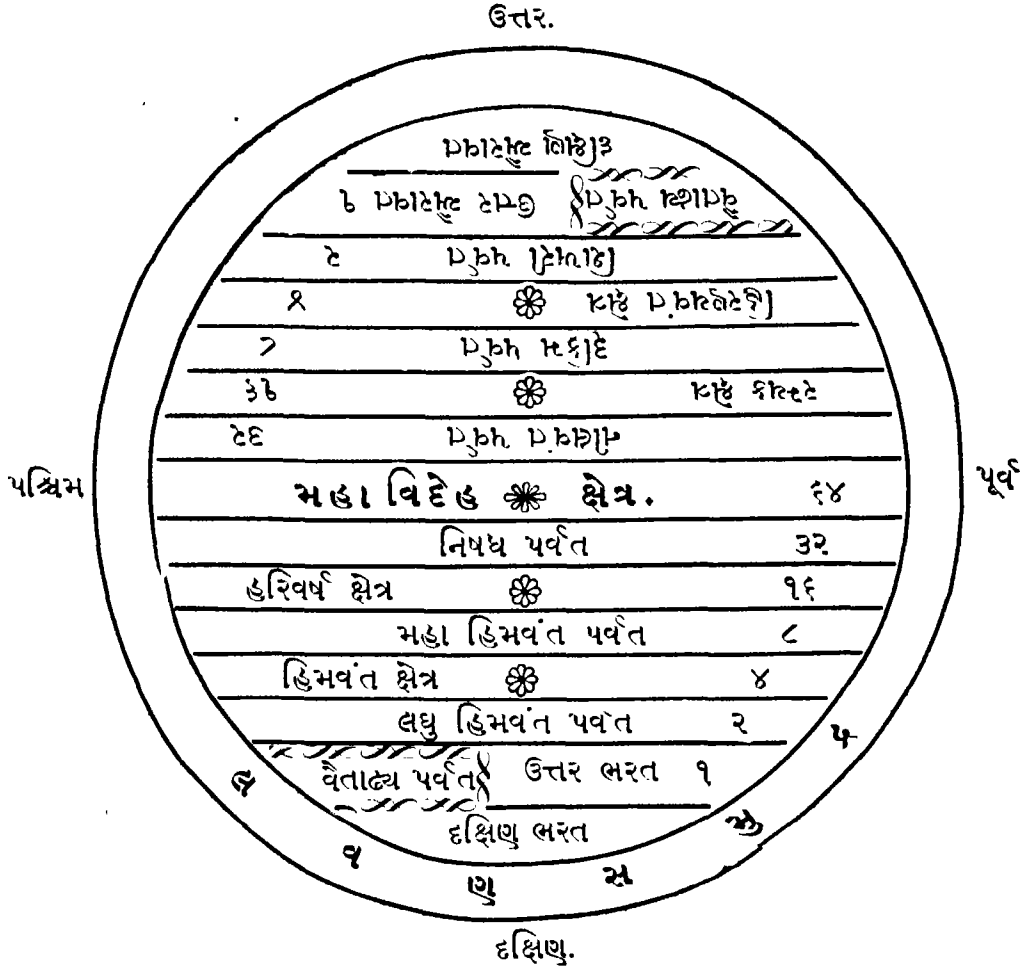 ઉત્તર.
દક્ષિણ ઐરાવત
ઉત્તર ઐરાવત ૧ વૈતાઢ્ય પર્વત
શિખરી પર્વત ૨
હિરણ્યવંત ક્ષેત્ર ૪
રૂકિમ પર્વત ૮
રમ્યક ક્ષેત્ર ૧૬
નીલવંત પર્વત ૩૨
પશ્ચિમ
મહા વિદેહ ક્ષેત્ર. ૬૪
પૂર્વ
નિષધ પર્વત ૩૨
હરિવર્ષ ક્ષેત્ર ૧૬
મહા હિમવંત પર્વત ૮
હિમવંત ક્ષેત્ર ૪
લઘુ હિમવંત પર્વત ૨
વૈતાઢ્ય પર્વત ઉત્તર ભરત ૧
દક્ષિણ ભરત
લવણ સમુદ્ર
દક્ષિણ.